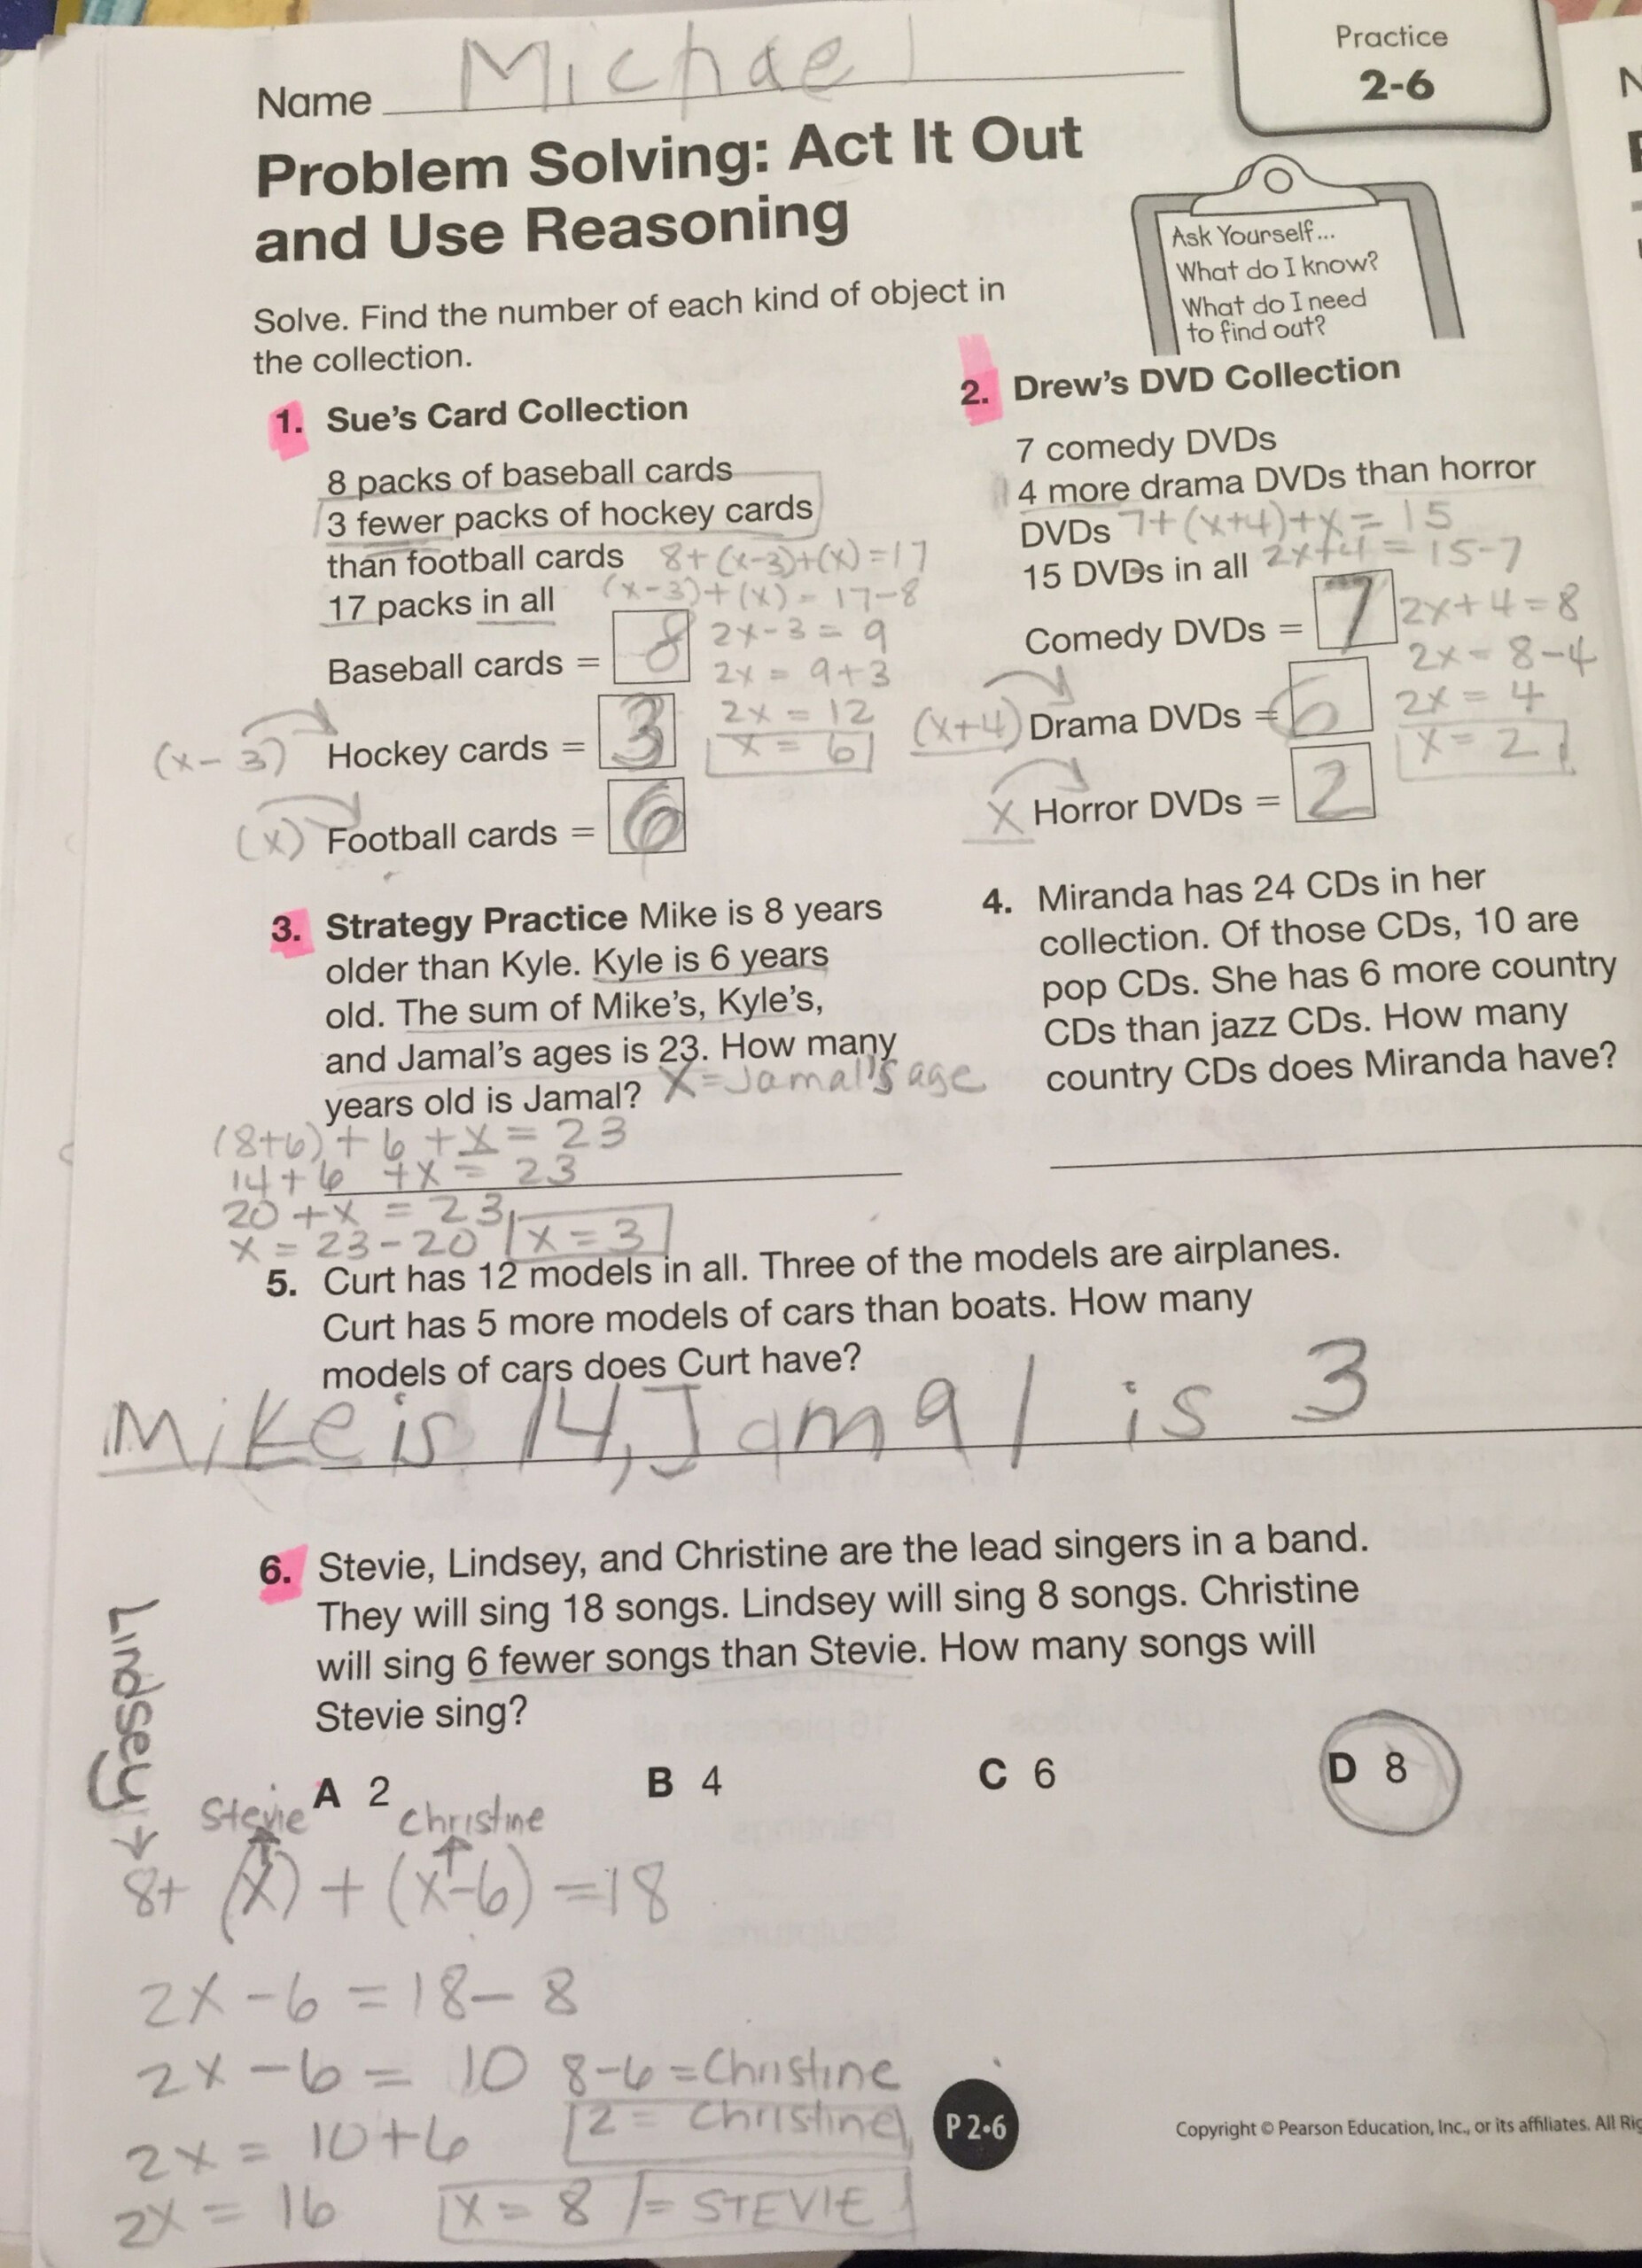 Name Michael
Practice
2-6
Problem Solving: Act It Out
and Use Reasoning
Ask Yourself...
What do I know?
What do I need
to find out?
Solve. Find the number of each kind of object in
the collection.
1. Sue's Card Collection
8 packs of baseball cards
3 fewer packs of hockey cards
than football cards 8+(x-3)+(x)=17
17 packs in all (x-3)+(x)=17-8
2x-3=9
Baseball cards = 8
2x=9+3
2x=12
(x-3) Hockey cards = 3
x=6
(x) Football cards = 6
2. Drew's DVD Collection
7 comedy DVDs
4 more drama DVDs than horror
DVDs 7+(x+4)+x=15
15 DVDs in all 2x+4=15-7
Comedy DVDs = 7 2x+4=8
2x=8-4
(x+4) Drama DVDs = 6 2x=4
x=2
x Horror DVDs = 2
3. Strategy Practice Mike is 8 years
older than Kyle. Kyle is 6 years
old. The sum of Mike's, Kyle's,
and Jamal's ages is 23. How many
years old is Jamal? X=Jamal's age
(8+6)+6+x=23
14+6+x=23
20+x=23
x=23-20 x=3
4. Miranda has 24 CDs in her
collection. Of those CDs, 10 are
pop CDs. She has 6 more country
CDs than jazz CDs. How many
country CDs does Miranda have?
5. Curt has 12 models in all. Three of the models are airplanes.
Curt has 5 more models of cars than boats. How many
models of cars does Curt have?
Mike is 14, Jamal is 3
6. Stevie, Lindsey, and Christine are the lead singers in a band.
They will sing 18 songs. Lindsey will sing 8 songs. Christine
will sing 6 fewer songs than Stevie. How many songs will
Stevie sing?
A 2 B 4 C 6 D 8
Lindsey →
Stevie Christine
8+(x)+(x-6)=18
2x-6=18-8
2x-6=10 8-6=Christine
2x=10+6 2=Christine
2x=16 x=8 =STEVIE
P 2•6
Copyright © Pearson Education, Inc., or its affiliates. All